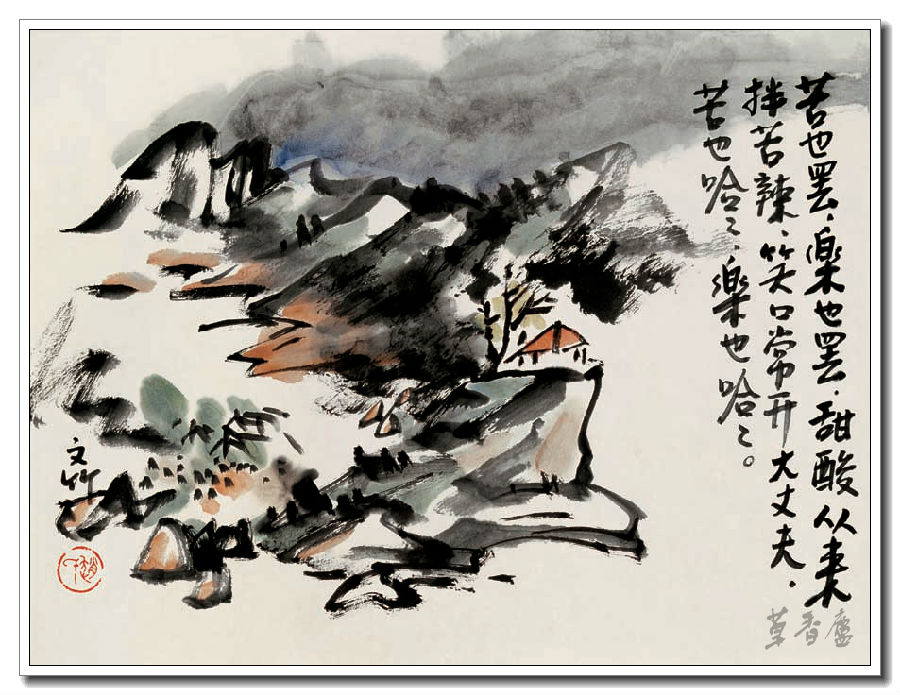 苦也罢、樂也罢、甜酸从来
拌苦辣、笑口常开大丈夫、
苦也哈〻、樂也哈〻。
文竹
草香廬